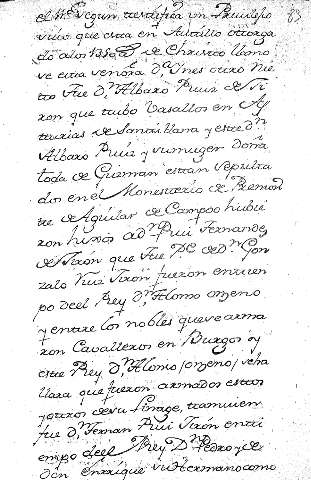 el 4º segun testifica un Privilejio 83
que esta en Sustillo otorga
do años 1350 de Christo llamo
se esta señora Dª Ynes otro nie
to fue Dⁿ Albaro Ruiz de Ti
ron que tubo Basallos en As
turias de Santillana y este Dⁿ
Albaro Ruiz y su muger Doña
toda de Guzman estan sepulta
dos en el Monesterio de Premon
tre de Aguilar de Campoo hubie
ron hijos a Dⁿ Rui Fernandez
de Tirón que fue Pe de Dⁿ Gon
zalo Ruiz Tirón fueron en tiem
po de el Rey Dⁿ Alonso onzeno
y entre los nobles que se arma
ron Cavalleros en Burgos y
este Rey Dⁿ Alonso onzeno se ha
llara que fueron armados estos
y otros de su linage, tamvien
fue Dⁿ Fernan Rui Tirón en ti
empo de el Rey Dⁿ Pedro y de
Don Enrrique su Hermano como